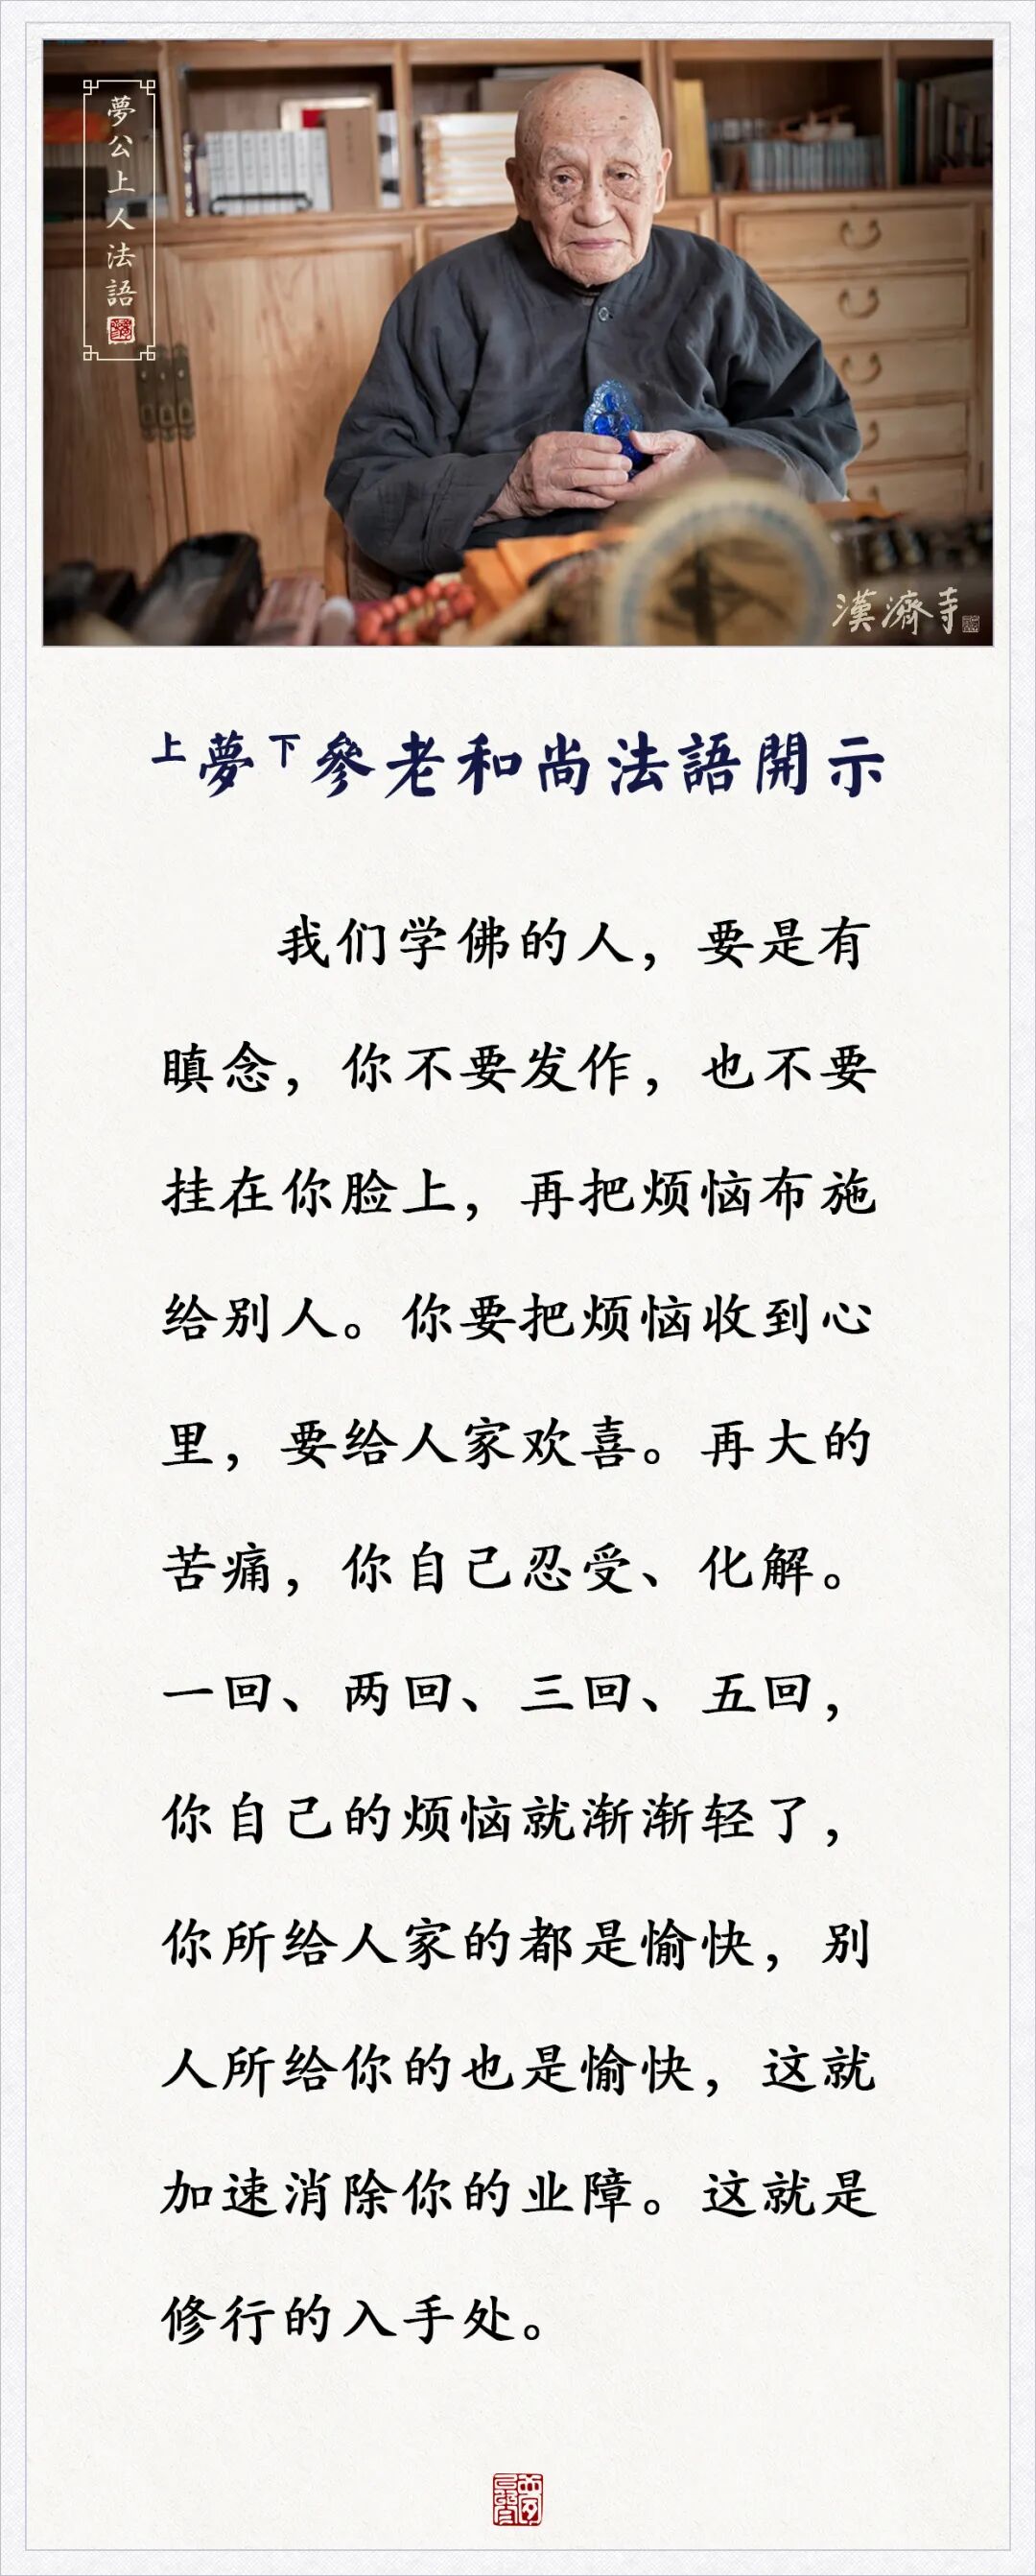 夢公上人法語
漢濟寺
上夢下參老和尚法語開示
我们学佛的人，要是有
瞋念，你不要发作，也不要
挂在你脸上，再把烦恼布施
给别人。你要把烦恼收到心
里，要给人家欢喜。再大的
苦痛，你自己忍受、化解。
一回、两回、三回、五回，
你自己的烦恼就渐渐轻了，
你所给人家的都是愉快，别
人所给你的也是愉快，这就
加速消除你的业障。这就是
修行的入手处。